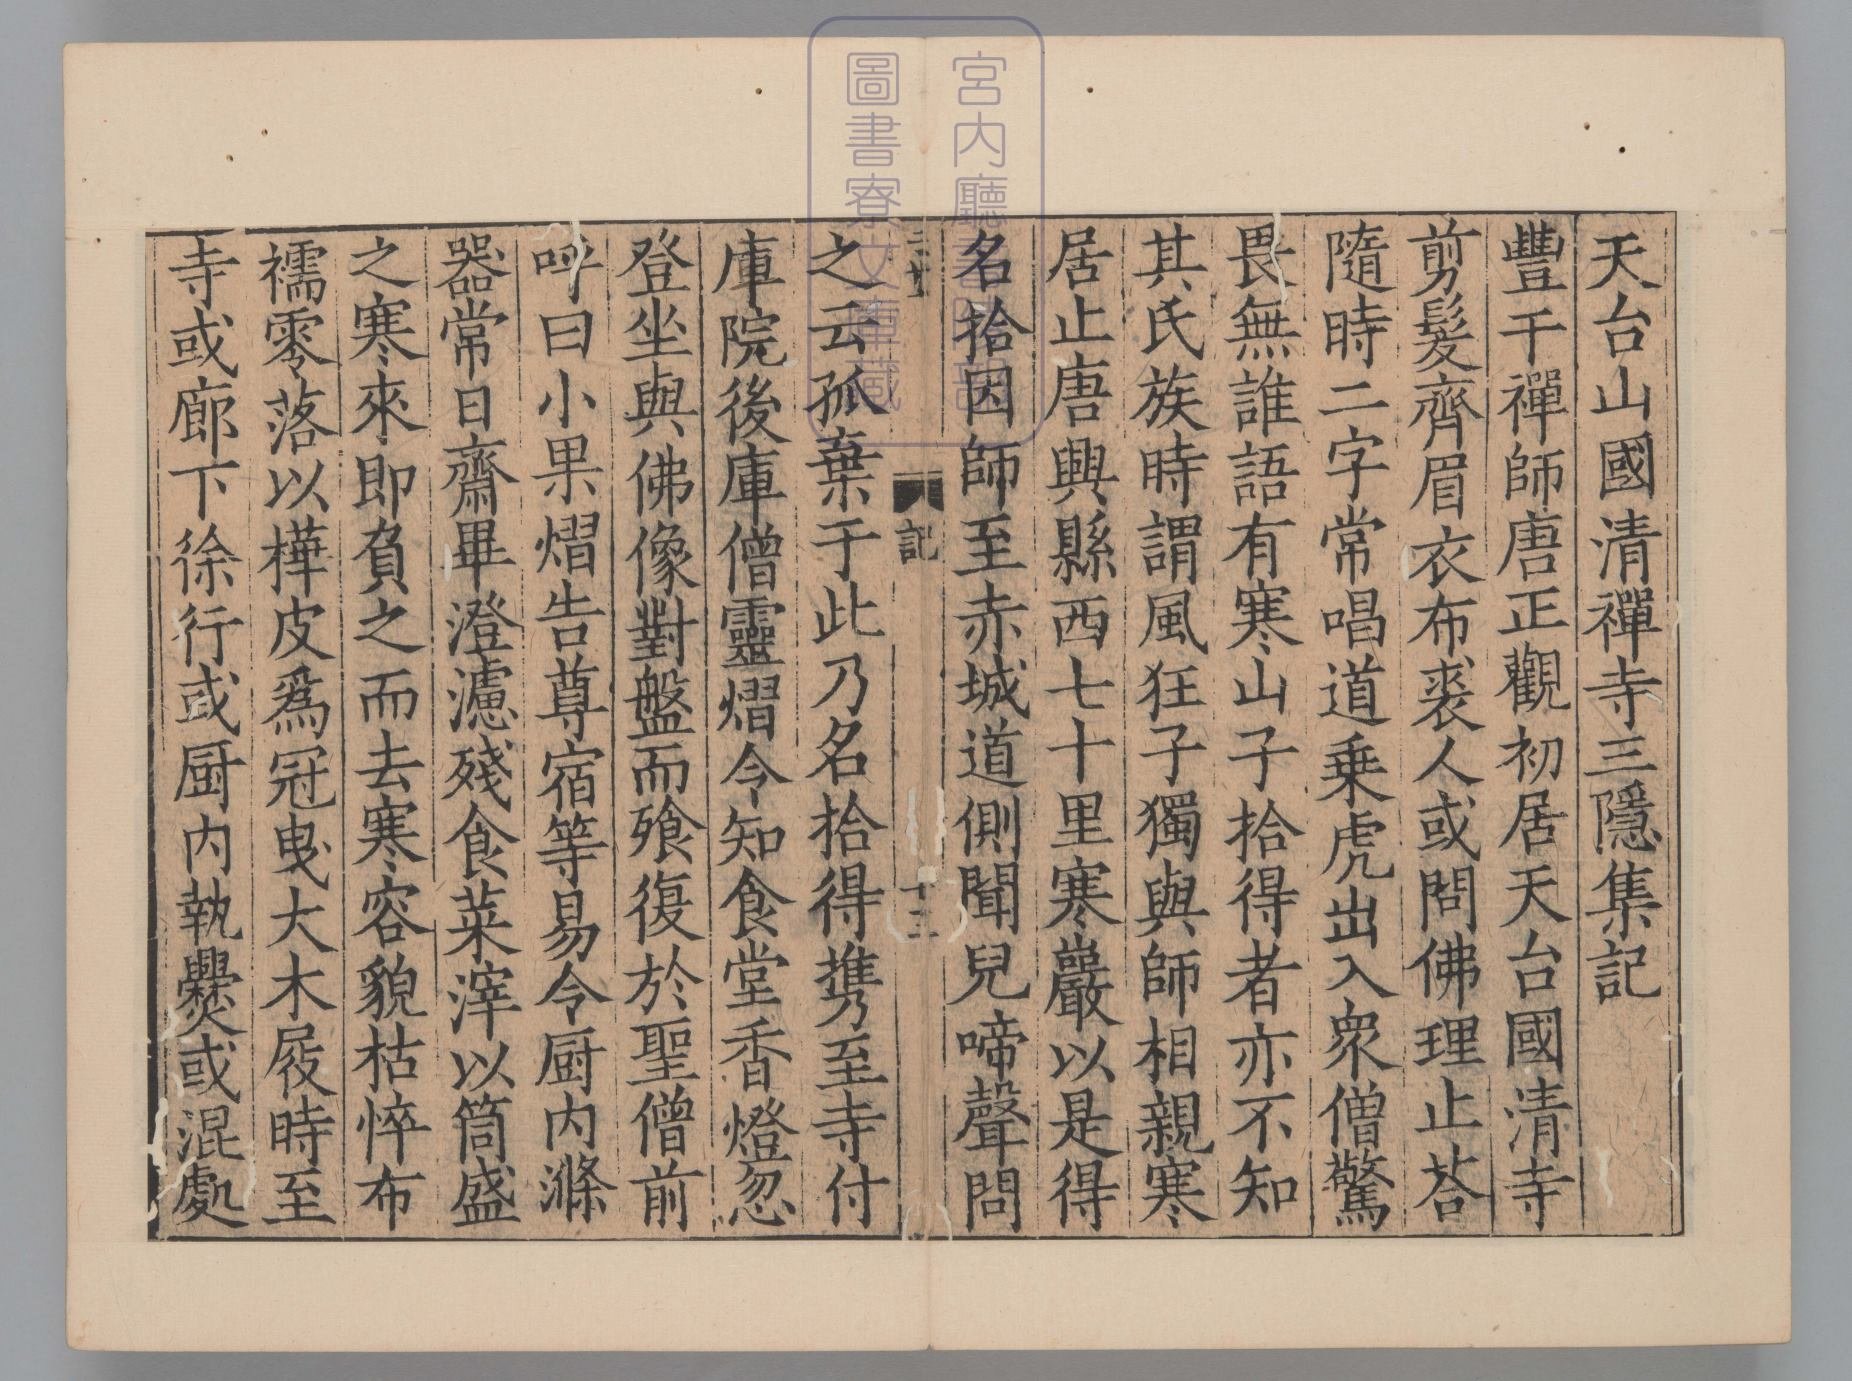 天台山國清禪寺三隱集記
豐干禪師唐正觀初居天台國清寺
剪髮齊眉衣布裘人或問佛理止荅
隨時二字常唱道乗虎出入衆僧驚
畏無誰語有寒山子拾得者亦不知
其氏族時謂風狂子獨與師相親寒
居止唐興縣西七十里寒巖以是得
名拾因師至赤城道側聞兒啼聲問
記
十三
之云孤棄于此乃名拾得携至寺付
庫院後庫僧靈熠令知食堂香燈忽
登坐與佛像對盤而飱復於聖僧前
呼曰小果熠告尊宿等易令厨内滌
器常日齋畢澄濾殘食菜滓以筒盛
之寒來即負之而去寒容貌枯悴布
襦零落以樺皮爲冠曳大木屐時至
寺或廊下徐行或厨内執爨或混處
宮内廳書陵部
圖書寮文庫藏